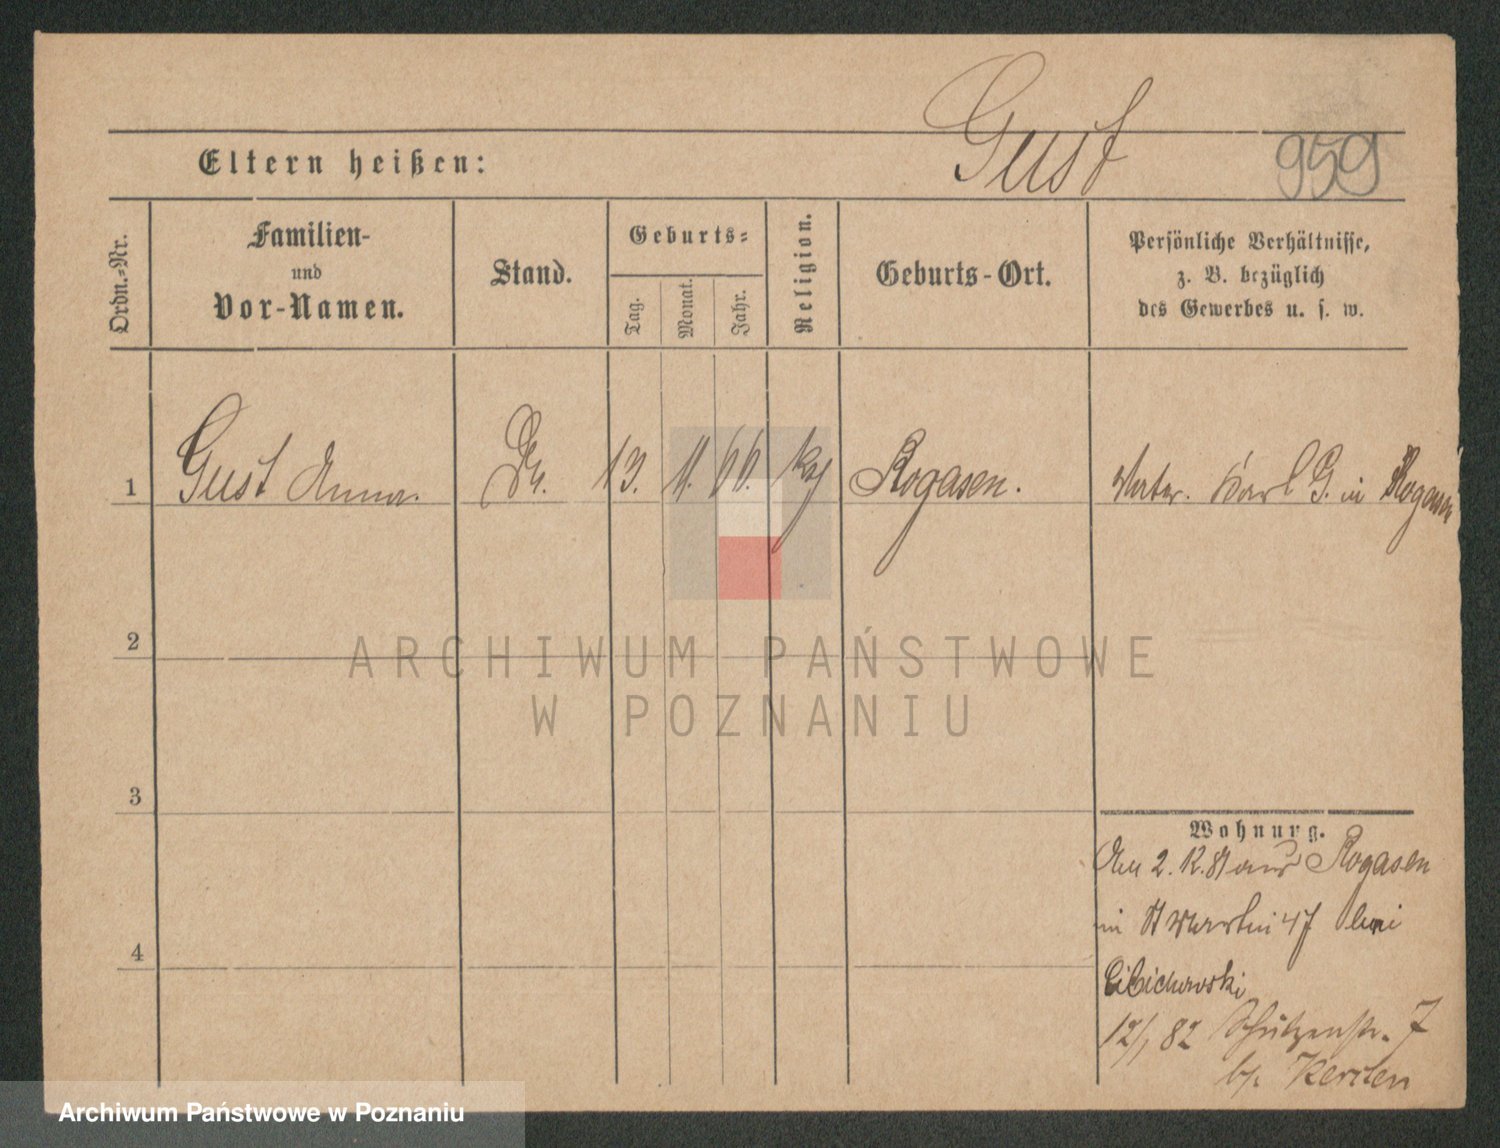 Gust
959
Eltern heißen:
Ordn.-Nr.
Familien-
und
Vor-Namen.
Stand.
Geburts-
Tag.
Monat.
Jahr.
Religion.
Geburts-Ort.
Persönliche Verhältnisse,
z. B. bezüglich
des Gewerbes u. s. w.
1 Gust Anna. 13. 11. 66. Rogasen. Vater. Karl G. in Rogasen
2
3
4
Wohnung.
Am 2. 12. 81 aus Rogasen
in St Martin 47 bei
Cibichowski
12/1 82 Schützenstr. 7
b/.
ARCHIWUM PAŃSTWOWE
W POZNANIU
Archiwum Państwowe w Poznaniu